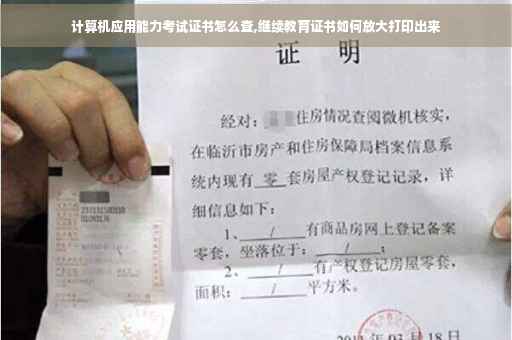 计算机应用能力考试证书怎么查,继续教育证书如何放大打印出来
证 明
经对：住房情况查阅微机核实，
在临沂市房产和住房保障局档案信息系
统内现有 零 套房屋产权登记记录，详
细信息如下：
1、 / 有商品房网上登记备案
零套，坐落位于： / ；
2、 / 有产权登记房屋零套，
面积： / 平方米。
03 月 18 日